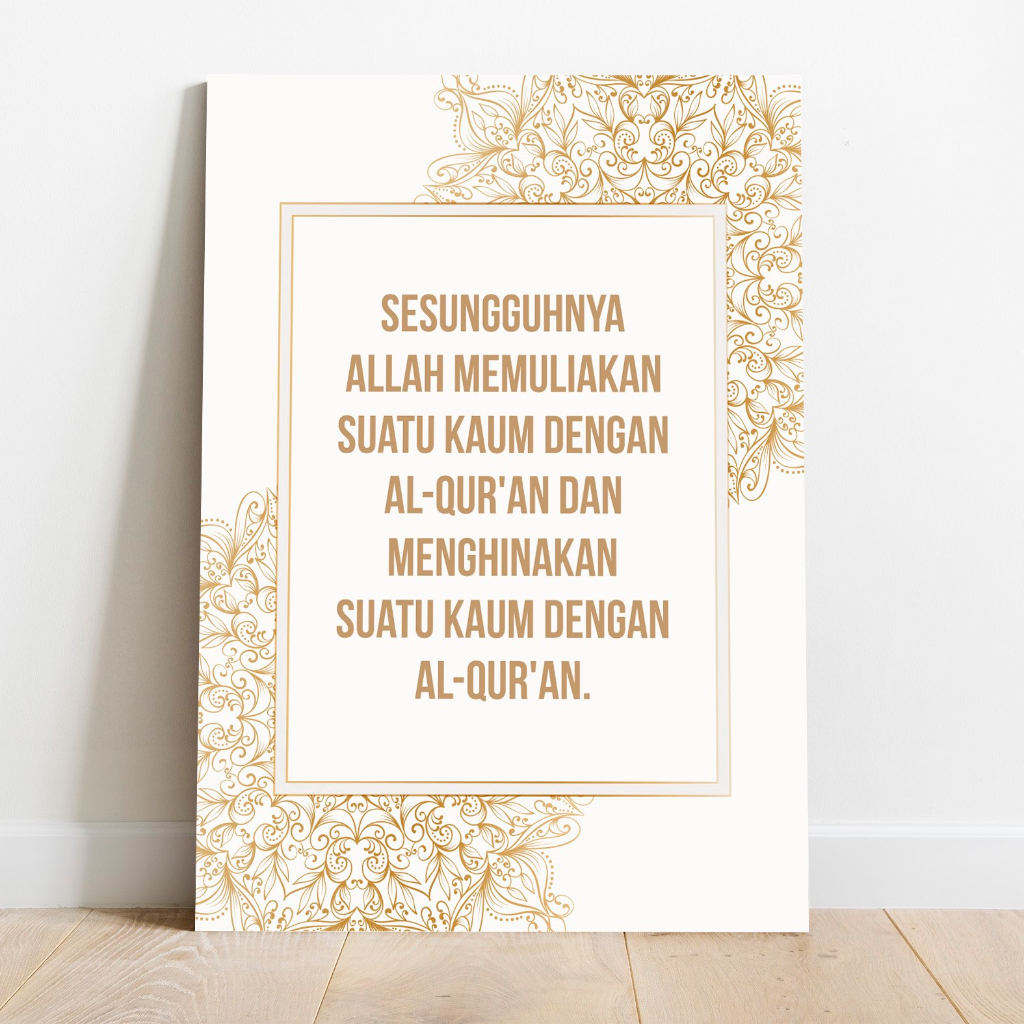 SESUNGGUHNYA
ALLAH MEMULIAKAN
SUATU KAUM DENGAN
AL-QUR'AN DAN
MENGHINAKAN
SUATU KAUM DENGAN
AL-QUR'AN.